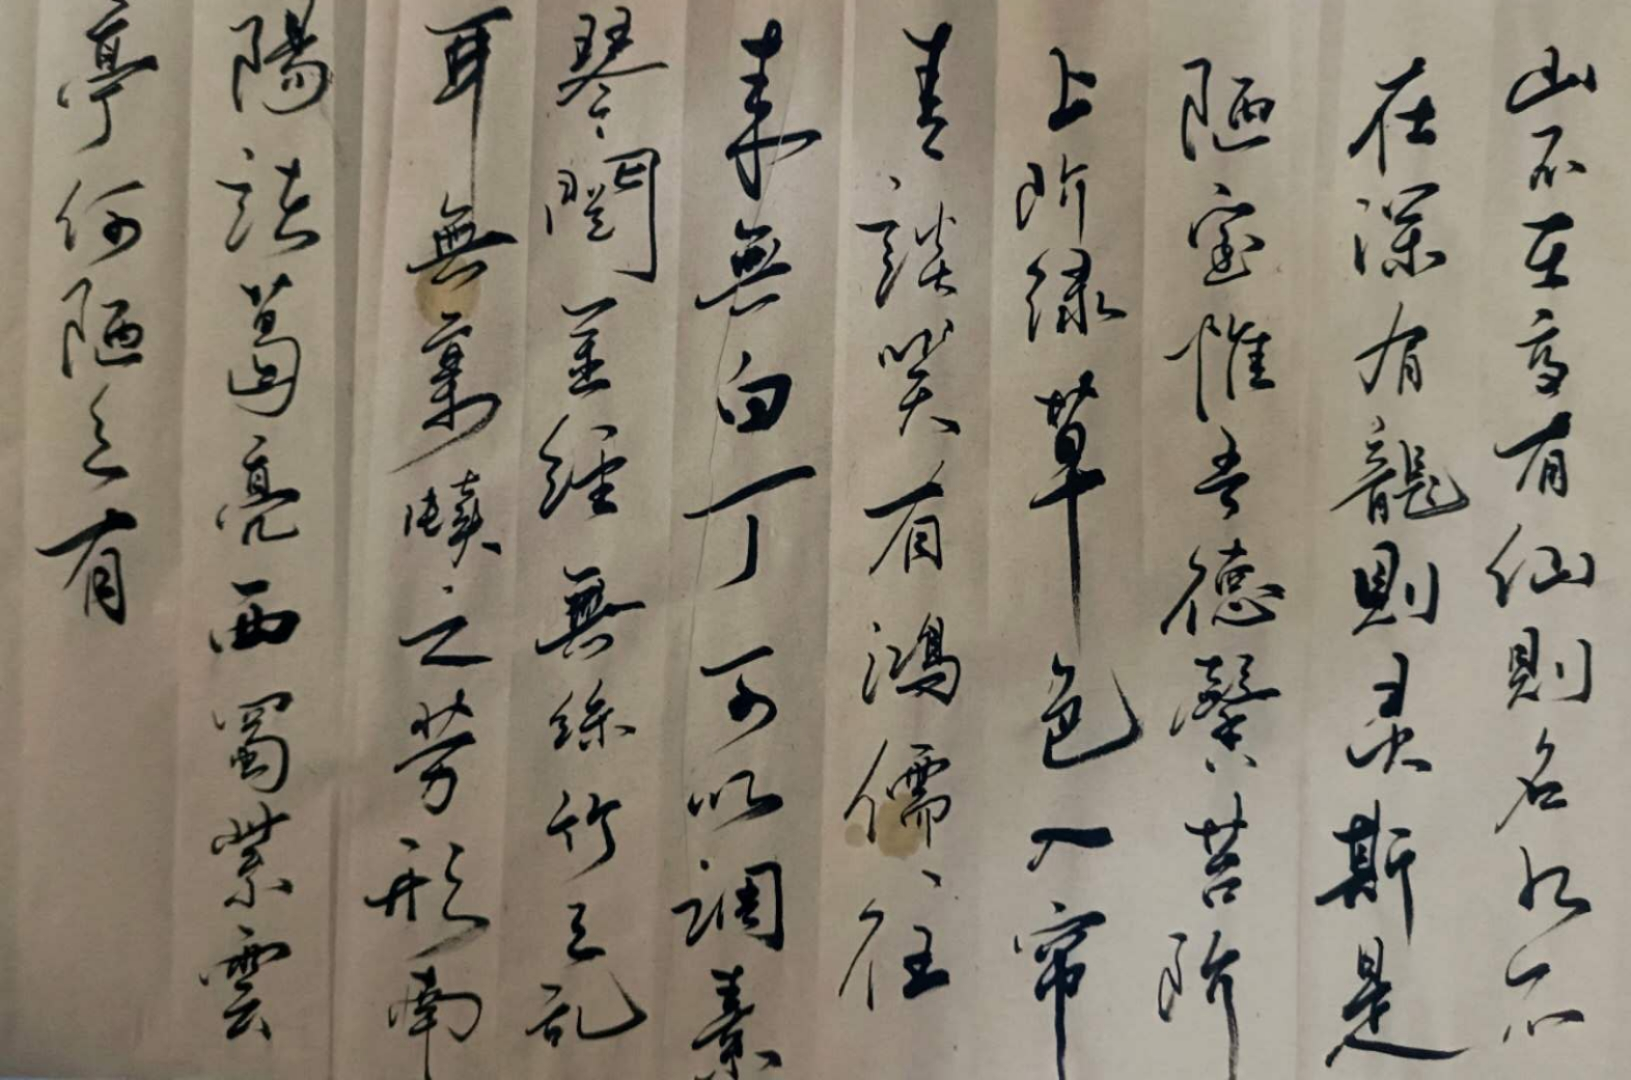 山不在高有仙則名水不
在深有龍則灵斯是
陋室惟吾德馨苔阶
上阶绿草色入帘
青談笑有鴻儒往
来無白丁可以调素
琴閲金經無絲竹之乱
耳無案牘之劳形南
陽諸葛亮西蜀紫雲
亭何陋之有